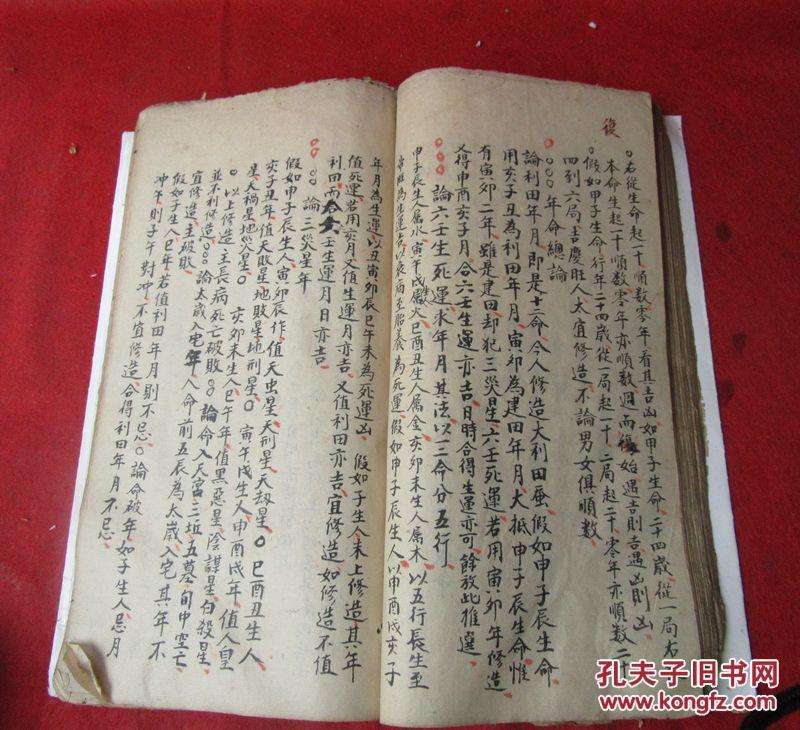 復
○右從生命起一十順數零年看其吉凶如甲子生命二十四歲從一局右
本命生起一十順數零年亦順數週而復始遇吉則吉遇凶則凶
○假如甲子生命行年二十四歲從一局起一十二局起二十零年亦順數二十
四到六局吉慶旺人大宜修造不論男女俱順數
○○○年命總論
論利田年月即是十二命今人修造大利田蚕假如申子辰生命惟
用亥子丑為利田年月寅卯為建田年月大抵申子辰生命
有寅卯二年雖是建田却犯三災星六壬死運若用寅卯年修造
又得申酉亥子月合六壬生運亦吉月時合得生運亦可餘放此推選
○○○論六壬生死運求年月其法以二命分五行
申子辰生人属水寅午戌属火巳酉丑生人属金亥卯未生人属木以五行長生至
帝旺為生運吉以衰病至胎養為死運假如申子辰生人以申酉戌亥子
年月為生運以丑寅卯辰巳午未為死運凶 假如子生人未上修造其年
值死運若用亥月又值生運月亦吉又值利田亦吉宜修造如修造不值
利田而六壬生運月日亦吉
○○○○論三災星年
假如申子辰生人寅卯辰作值天虫星天刑星天劫星○巳酉丑生人
亥子丑年值天敗星地敗星地刑星○寅午戌生人申酉戌年值人皇
星天禍星地災星○亥卯未生人巳午年值黑惡星陰謀星白殺星
○以上修造主長病死亡破敗○論命入天宮三坵五墓旬中空亡
並不利修造○○○論太歲入宅年人命前五辰為太歲入宅其年不
宜修造主破敗
假如子生人巳年若值利田年月則不忌○論命破年如子生人忌月
冲午則子午對冲不宜修造合得利田年月不忌
孔夫子旧书网
kongfz.com